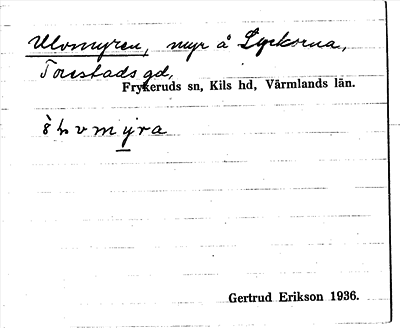 Ulvmyren, myr å Lyckorna,
Torestads gd,
Frykeruds sn, Kils hd, Värmlands län.
myra
Gertrud Erikson 1936.